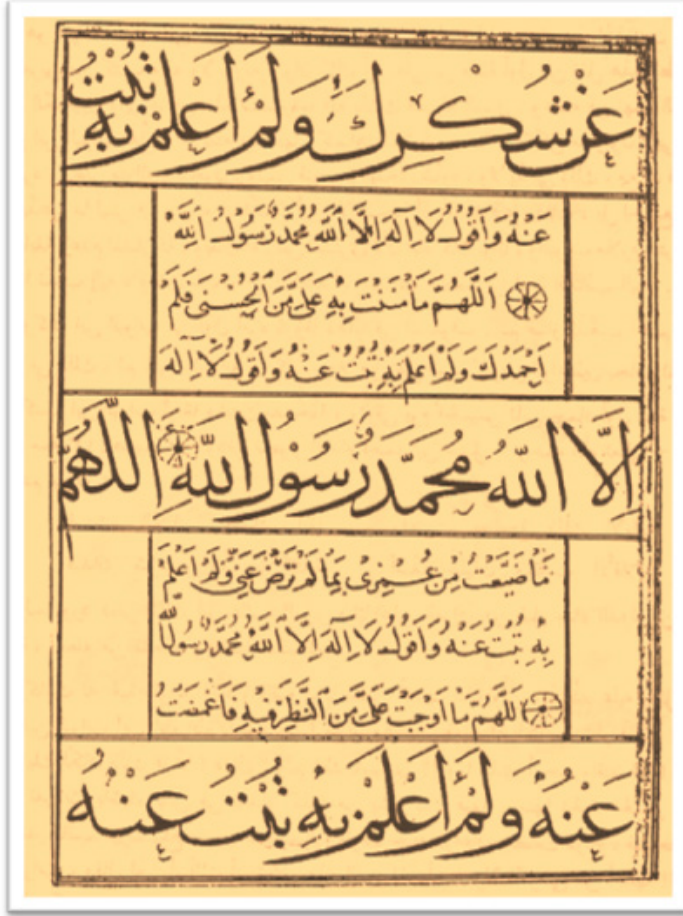 عَنْ شُكْرِكَ وَلَمْ أَعْلَمْ بِهِ تُبْتُ
عَنْهُ وَأَقُولُ لَا إِلَهَ إِلَّا اللهُ مُحَمَّدٌ رَسُولُ اللهِ
اَللَّهُمَّ مَا مَنَنْتَ بِهِ عَلَيَّ مِنَ الْحُسْنَى فَلَمْ
أَحْمَدْكَ وَلَمْ أَعْلَمْ بِهِ تُبْتُ عَنْهُ وَأَقُولُ لَا إِلَهَ
إِلَّا اللهُ مُحَمَّدٌ رَسُولُ اللهِ اَللَّهُمَّ
مَا ضَيَّعْتُ مِنْ عُمْرِي بِمَا لَمْ تَرْضَ عَنِّي وَلَمْ أَعْلَمْ
بِهِ تُبْتُ عَنْهُ وَأَقُولُ لَا إِلَهَ إِلَّا اللهُ مُحَمَّدٌ رَسُولُ اللهِ
اَللَّهُمَّ مَا أَوْجَبْتَ عَلَيَّ مِنَ النَّظَرِ فِيهِ فَأَغْمَضْتُ
عَنْهُ وَلَمْ أَعْلَمْ بِهِ تُبْتُ عَنْهُ